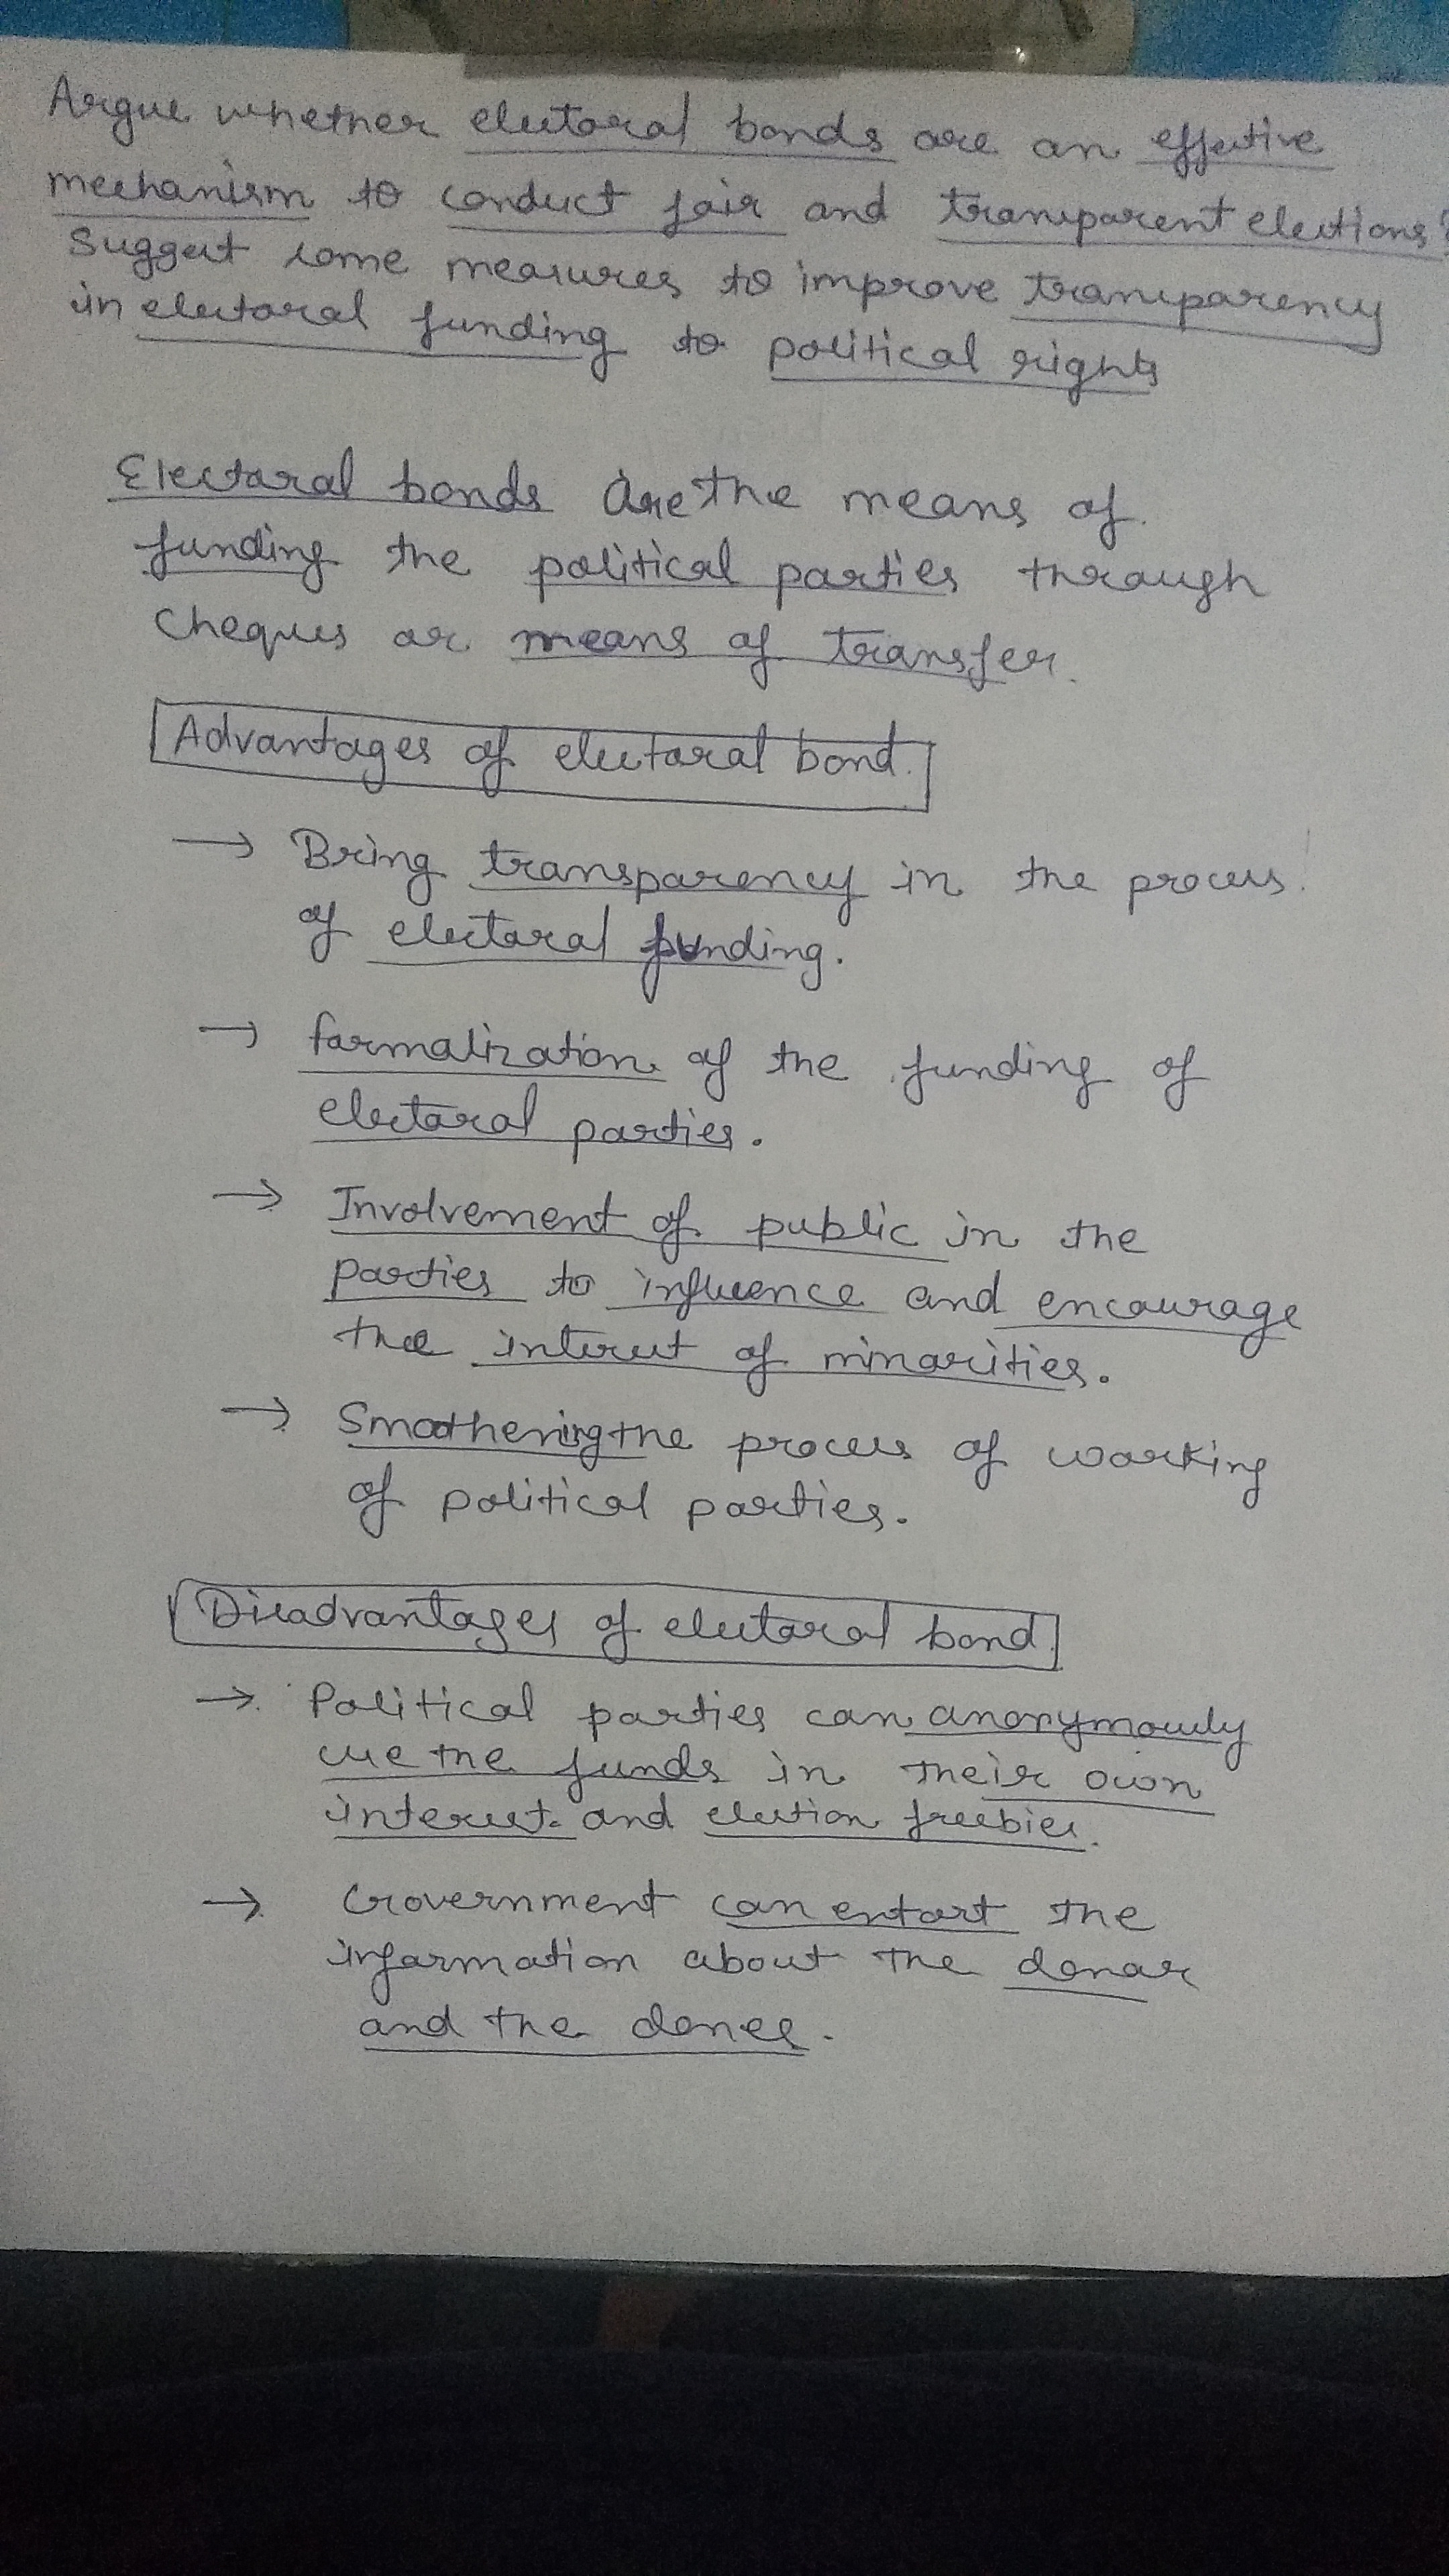 Argue whether electoral bonds are an effective
mechanism to conduct fair and transparent elections?
Suggest some measures to improve transparency
in electoral funding to political rights
Electoral bonds are the means of
funding the political parties through
cheques or means of transfer.
Advantages of electoral bond.
→ Bring transparency in the process
of electoral funding.
→ formalization of the funding of
electoral parties.
→ Involvement of public in the
parties to influence and encourage
the interest of minorities.
→ Smoothening the process of working
of political parties.
Disadvantages of electoral bond.
→ Political parties can anonymously
use the funds in their own
interest and election freebies.
→ Government can extort the
information about the donor
and the donee.